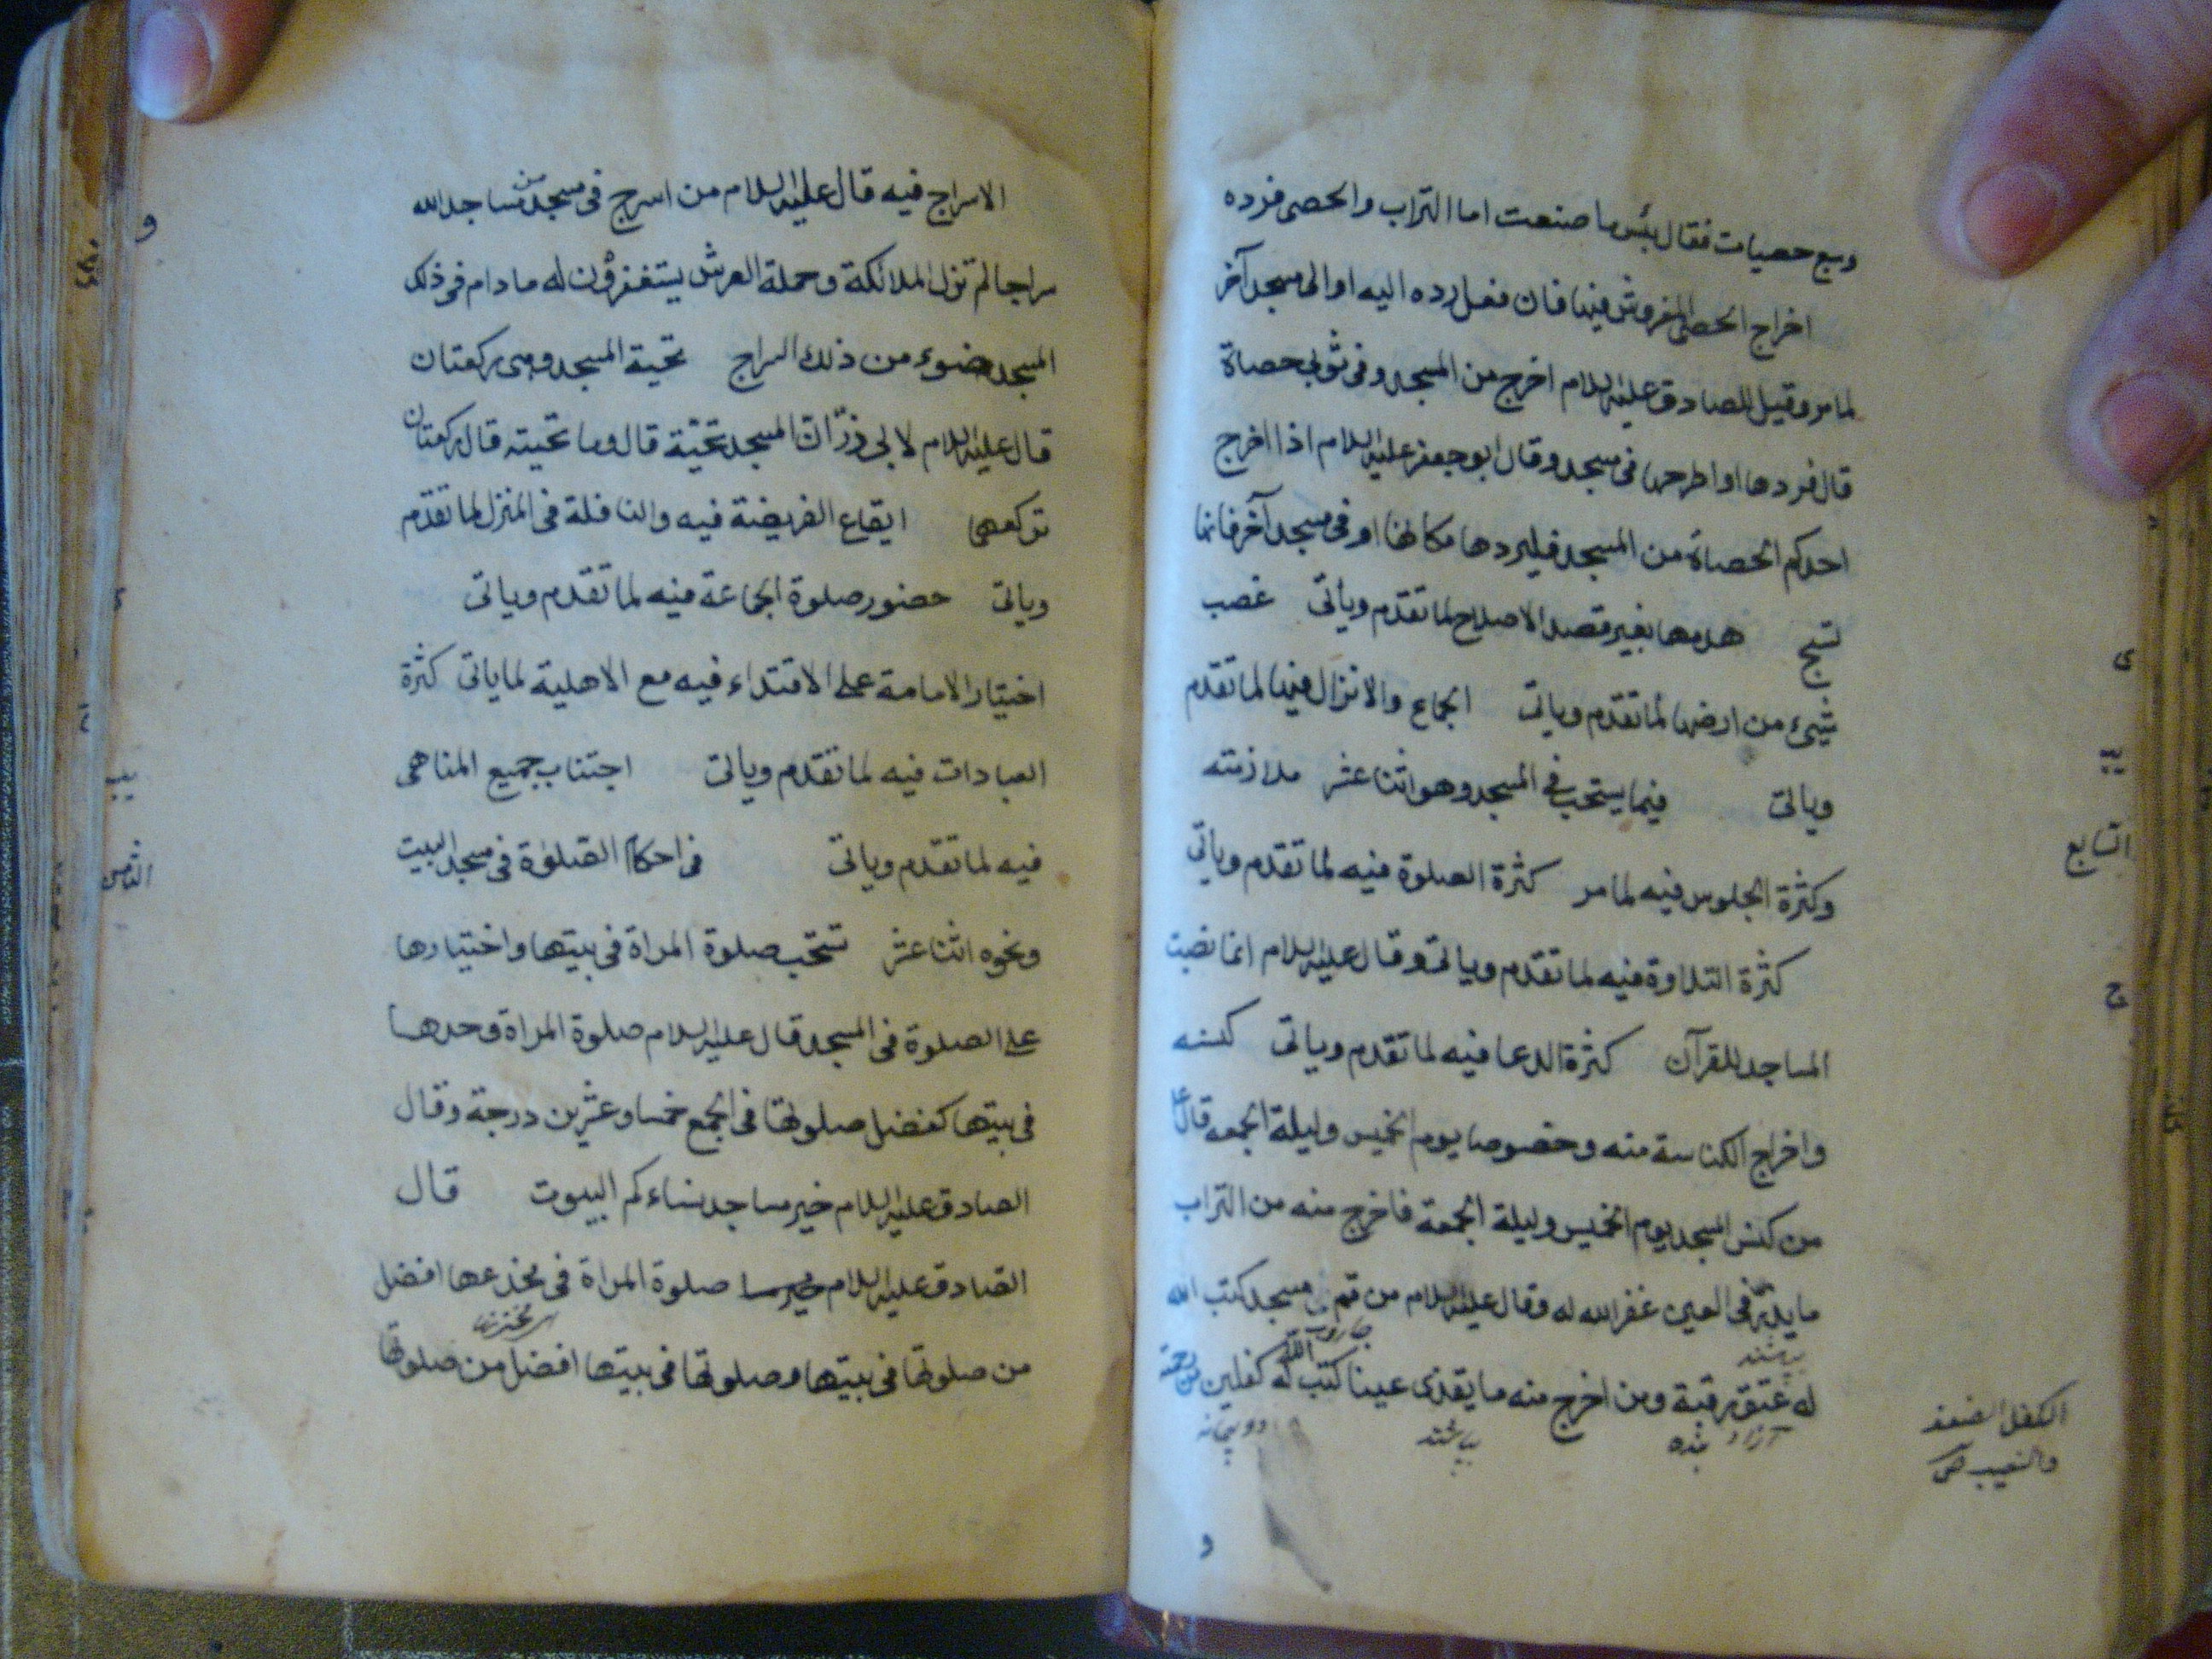 وسبع حصيات فقال بئس ما صنعت اما التراب والحصى فرده
اخراج الحصى المفروش فيها فان فعل رده اليه او الى مسجد آخر
لما مر وقيل للصادق عليه السلام اخرج من المسجد وفى ثوبى حصاة
قال فردها او اطرحها فى مسجد وقال ابو جعفر عليه السلام اذا اخرج
احدكم الحصاة من المسجد فليردها مكانها او فى مسجد آخر فانها
تسبح هدمها بغير قصد الاصلاح لما تقدم ويأتى غصب
شيئ من ارضها لما تقدم وياتى الجماع والانزال فيها لما تقدم
وياتى فيما يستحب فى المسجد وهو اثنا عشر ملازمته
وكثرة الجلوس فيه لما مر كثرة الصلوة فيه لما تقدم وياتى
كثرة التلاوة فيه لما تقدم وياتى وقال عليه السلام انما نصبت
المساجد للقرآن كثرة الدعا فيه لما تقدم وياتى كنسه
واخراج الكناسة منه وخصوصا يوم الخميس وليلة الجمعه قال ع
من كنس المسجد يوم الخميس وليلة الجمعة فاخرج منه من التراب
ما يذر فى العين غفر الله له وقال عليه السلام من قم مسجد كتب الله
جاروب
له عتق رقبة ومن اخرج منه ما يقذى عينا كتب الله له كفلين من رحمته
آزاد بنده
ى
السابع
ج
الكفل الضعف
والنصيب ص
و
الاسراج فيه قال عليه السلام من اسرج فى مسجد من مساجد الله
سراجا لم تزل الملائكة وحملة العرش يستغفرون له ما دام فى ذلك
المسجد ضوء من ذلك السراج تحية المسجد وهى ركعتان
قال عليه السلام لابى ذر ان للمسجد تحية قال وما تحيته قال ركعتان
تركعهما ايقاع الفريضة فيه والنافلة فى المنزل لما تقدم
وياتى حضور صلوة الجماعة فيه لما تقدم وياتى
اختيار الامامة على الاقتداء فيه مع الاهلية لما ياتى كثرة
العبادات فيه لما تقدم وياتى اجتناب جميع المناهى
فيه لما تقدم وياتى فى احكام الصلوة فى مسجد البيت
ونحوه اثنا عشر تستحب صلوة المراة فى بيتها واختيارها
على الصلوة فى المسجد قال عليه السلام صلوة المراة وحدها
فى بيتها كفضل صلوتها فى الجمع خمسا وعشرين درجة وقال
الصادق عليه السلام خير مساجد نساءكم البيوت قال
الصادق عليه السلام صلوة المراة فى مخدعها افضل
من صلوتها فى بيتها وصلوتها فى بيتها افضل من صلوتها
و
يب
الثامن